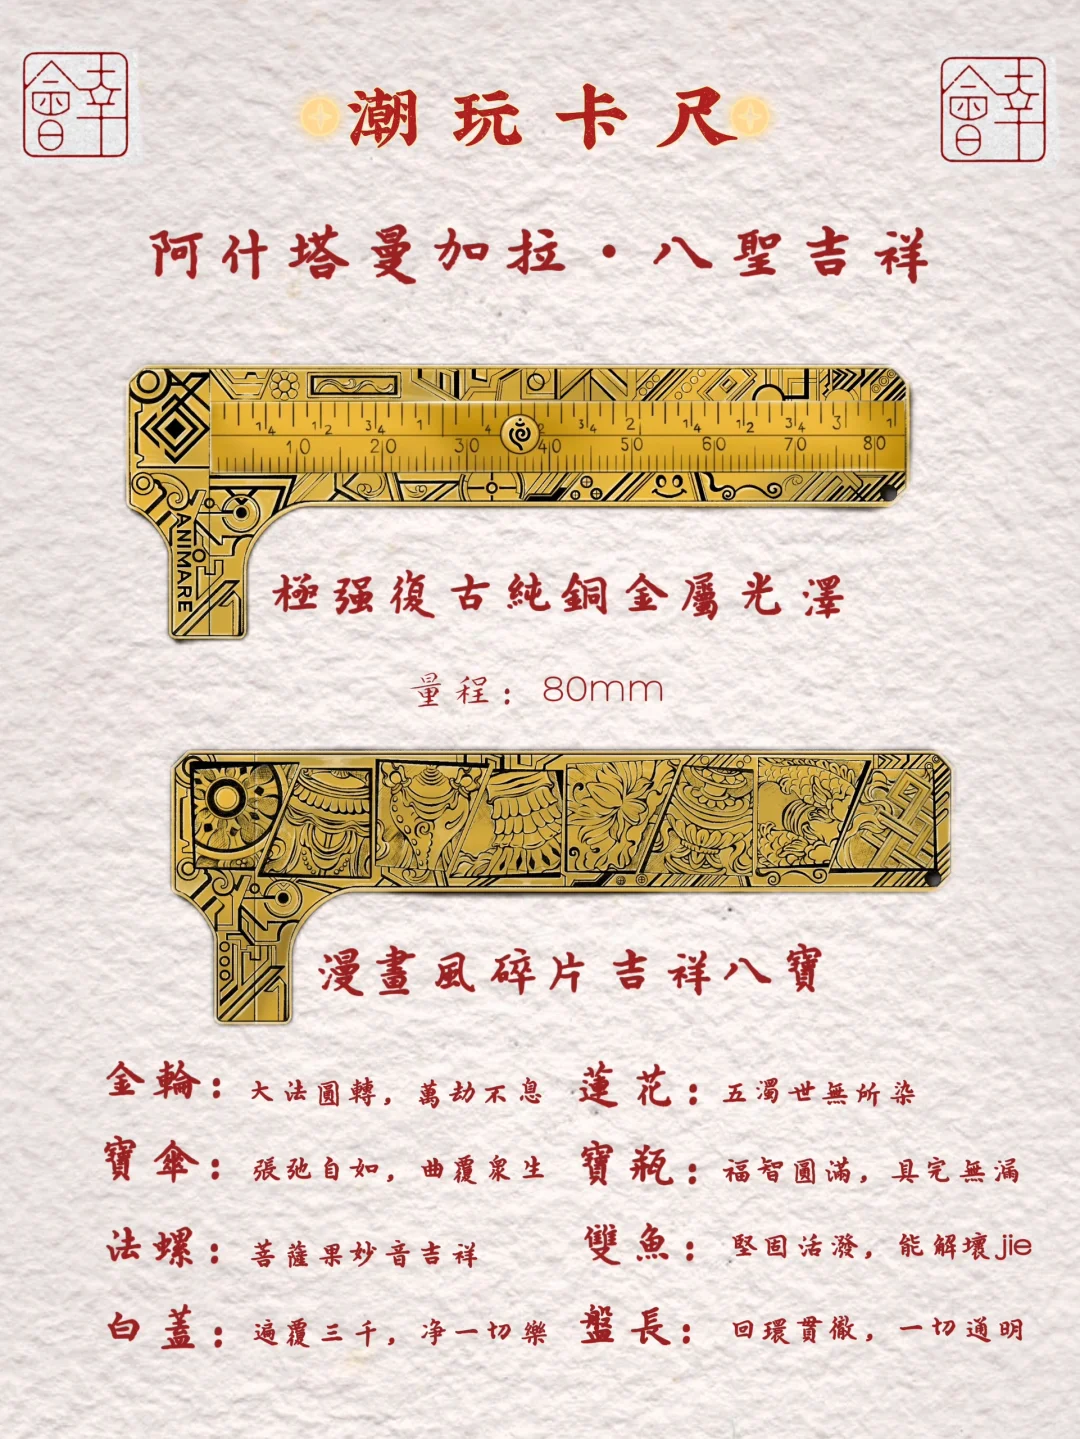 幸會
幸會
潮玩卡尺
阿什塔曼加拉·八聖吉祥
1/4 1/2 3/4 1 1/4 1/2 3/4 2 1/4 3/4 2 1/4 1/2 3/4 1
10 20 30 40 50 60 70 80
ANIMARE
極强復古純銅金屬光澤
量程：80mm
漫畫風碎片吉祥八寶
金輪：大法圓轉，萬劫不息
蓮花：五濁世無所染
寶傘：張弛自如，曲覆衆生
寶瓶：福智圓滿，具完無漏
法螺：菩薩果妙音吉祥
雙魚：堅固活潑，能解壞jie
白蓋：遍覆三千，净一切樂
盤長：回環貫徹，一切通明